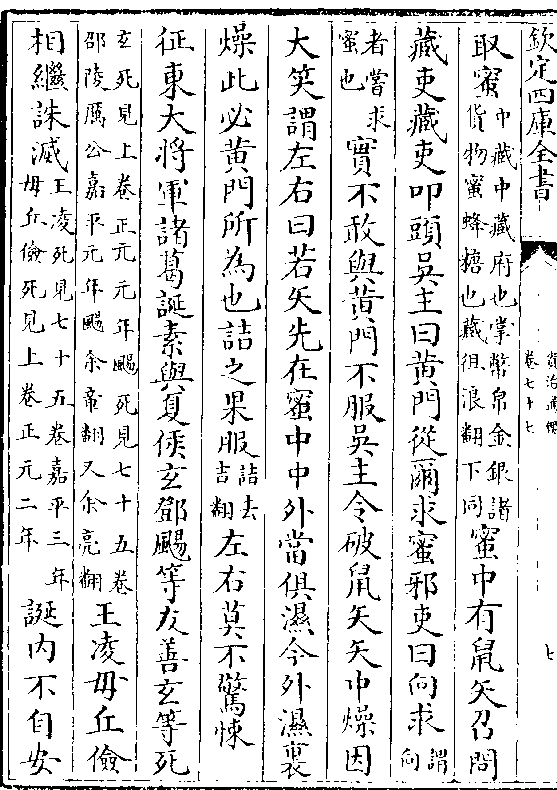 欽定四庫全書
資治通鑑
卷七十七
七
取蜜中藏中藏府也掌幣帛金銀諸貨物蜜蜂糖也藏徂浪翻下同蜜中有鼠矢召問
藏吏藏吏叩頭吳主曰黄門從爾求蜜邪吏曰向求謂向
者嘗求蜜也實不敢與黄門不服吳主令破鼠矢矢中燥因
大笑謂左右曰若矢先在蜜中中外當俱濕今外濕裏
燥此必黄門所為也詰之果服詰去吉翻左右莫不驚悚
征東大將軍諸葛誕素與夏侯玄鄧颺等友善玄等死
玄死見上卷正元元年颺死見七十五卷邵陵厲公嘉平元年颺余章翻又余亮翻王凌毋丘儉
相繼誅滅王凌死見七十五卷嘉平三年毋丘儉死見上卷正元二年誕内不自安